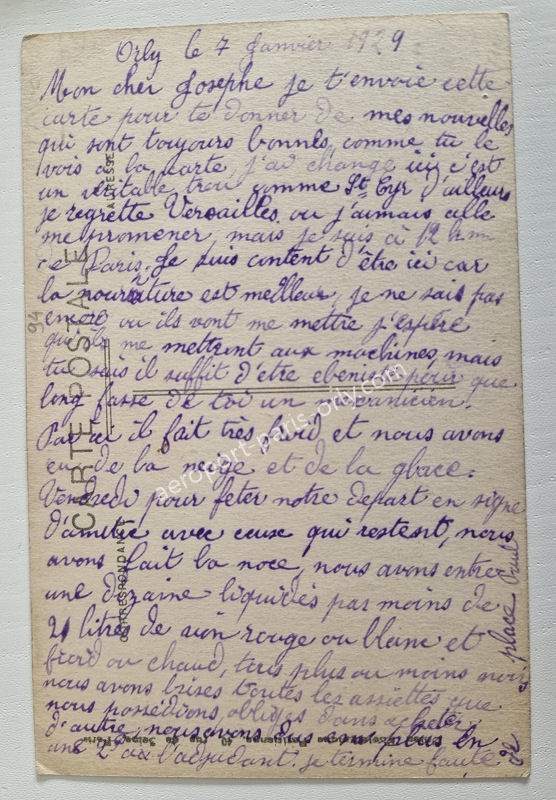 Orly le 7 Janvier 1929
Mon cher Josephe je t'envoie cette
carte pour te donner de mes nouvelles
qui sont toujours bonnes, comme tu le
vois a la carte, j'ai changé ici, c'est
un veritable trou comme St Cyr d'ailleurs
je regrette Versailles, ou j'aimais allé
me promener, mais je suis à 12 km
de Paris. Je suis content d'être ici car
la nourriture est meilleur, je ne sais pas
encore ou ils vont me mettre j'espère
qu'ils me mettront aux machines, mais
tu sais il suffit d'être ebeniste pour que
l'on fasse de toi un mécanicien.
Par ici il fait très froid et nous avons
eu de la neige et de la glace.
Vendredi pour feter notre depart en signe
d'amitié avec ceux qui restent, nous
avons fait la noce, nous avons entre
une dizaine liquidés pas moins de
21 litres de vin rouge ou blanc et
froid ou chaud, tous plus ou moins noirs
nous avons brisés toutes les assiettes que
nous possédions, obligés d'en acheter
d'autre, nous avons
une 2e à l'adjudant. je termine faute
de place
CARTE POSTALE
CORRESPONDANCE
ADRESSE
94
aeroport-paris-orly.com